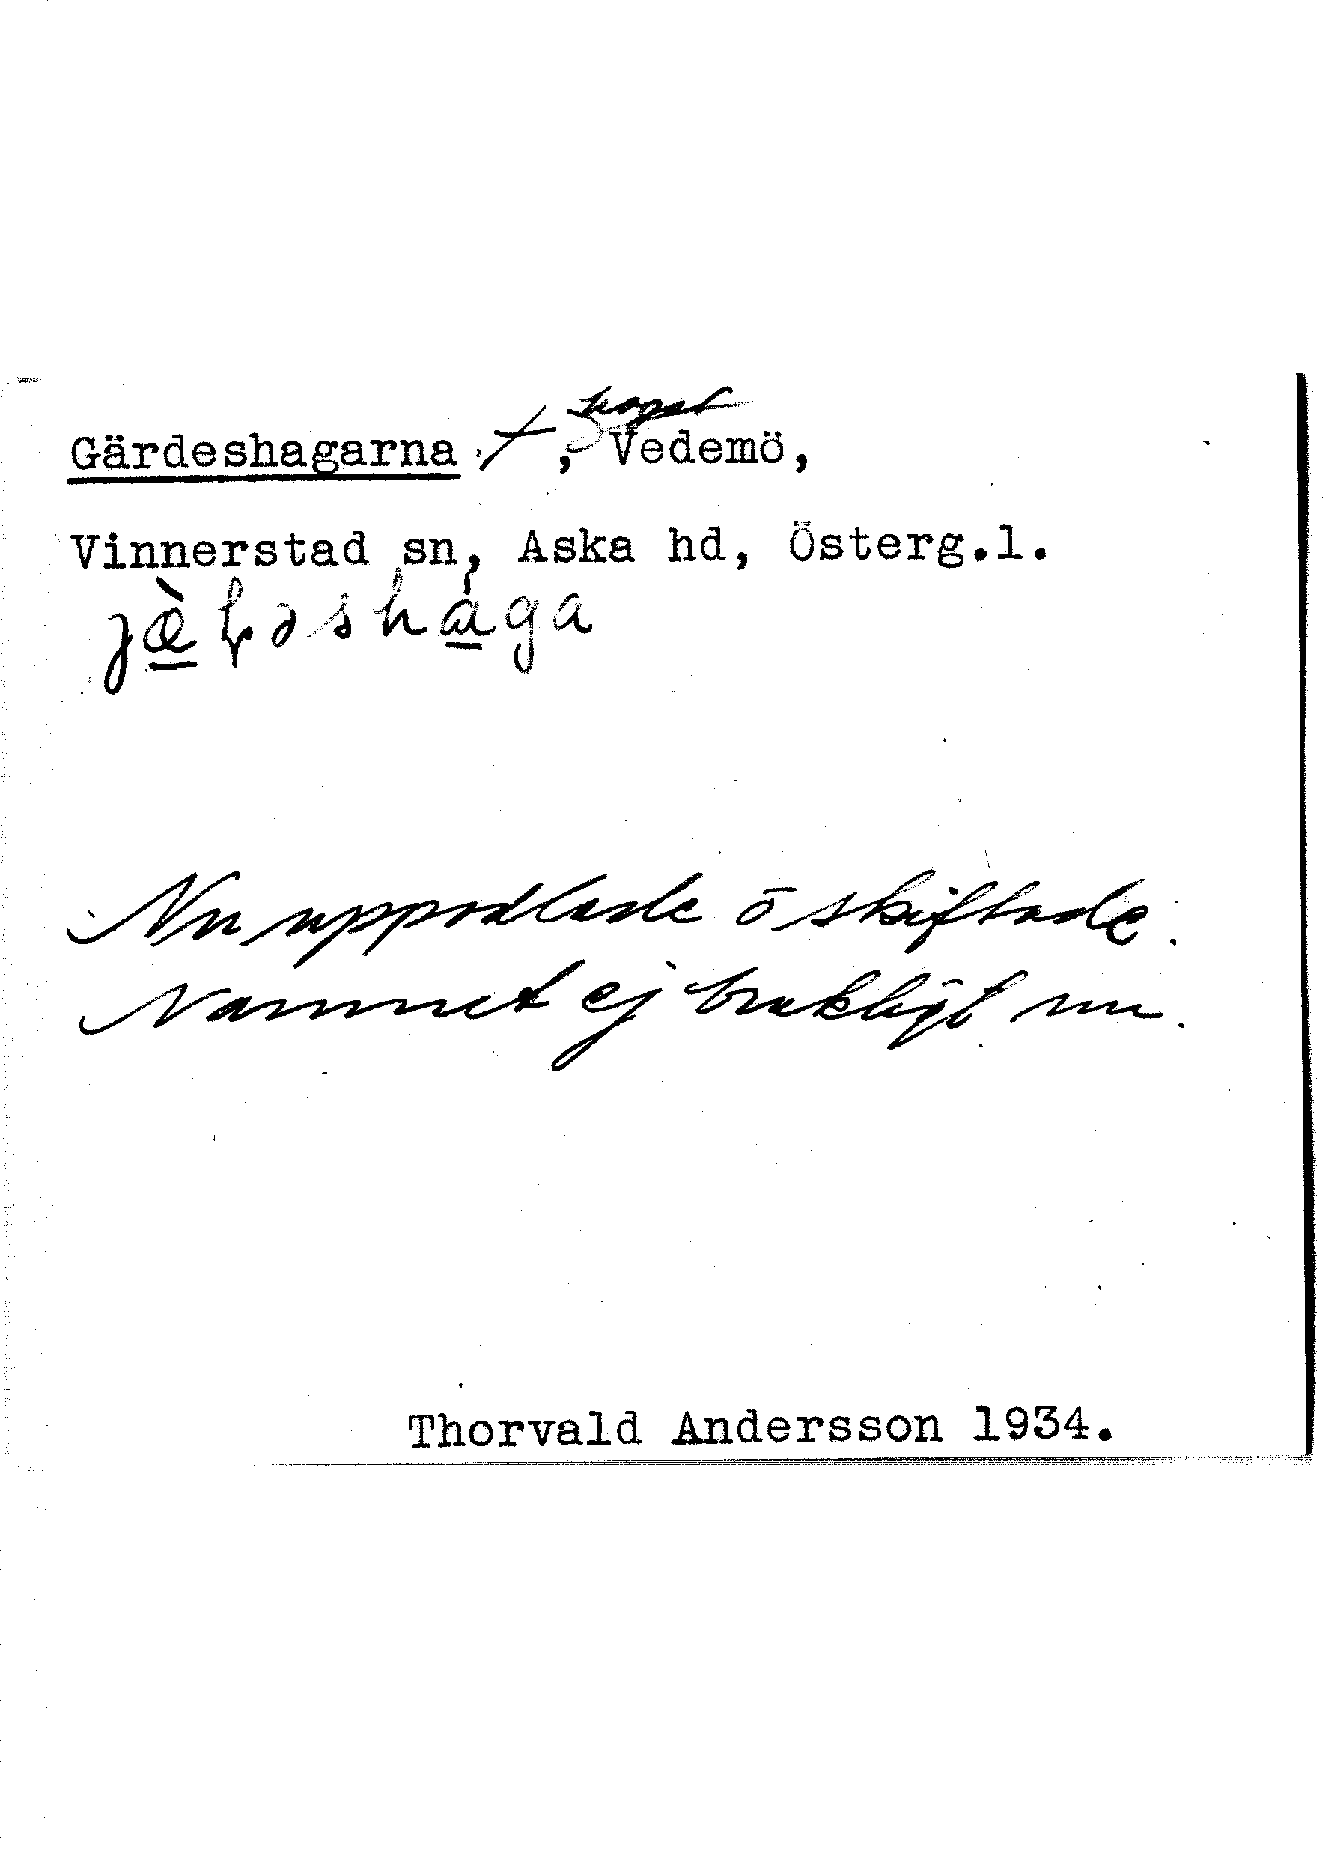 Gärdeshagarna †, Vedemö,
Vinnerstad sn, Aska hd, Österg.l.
Nu uppodlade o skiftade.
Namnet ej brukligt nu.
Thorvald Andersson 1934.